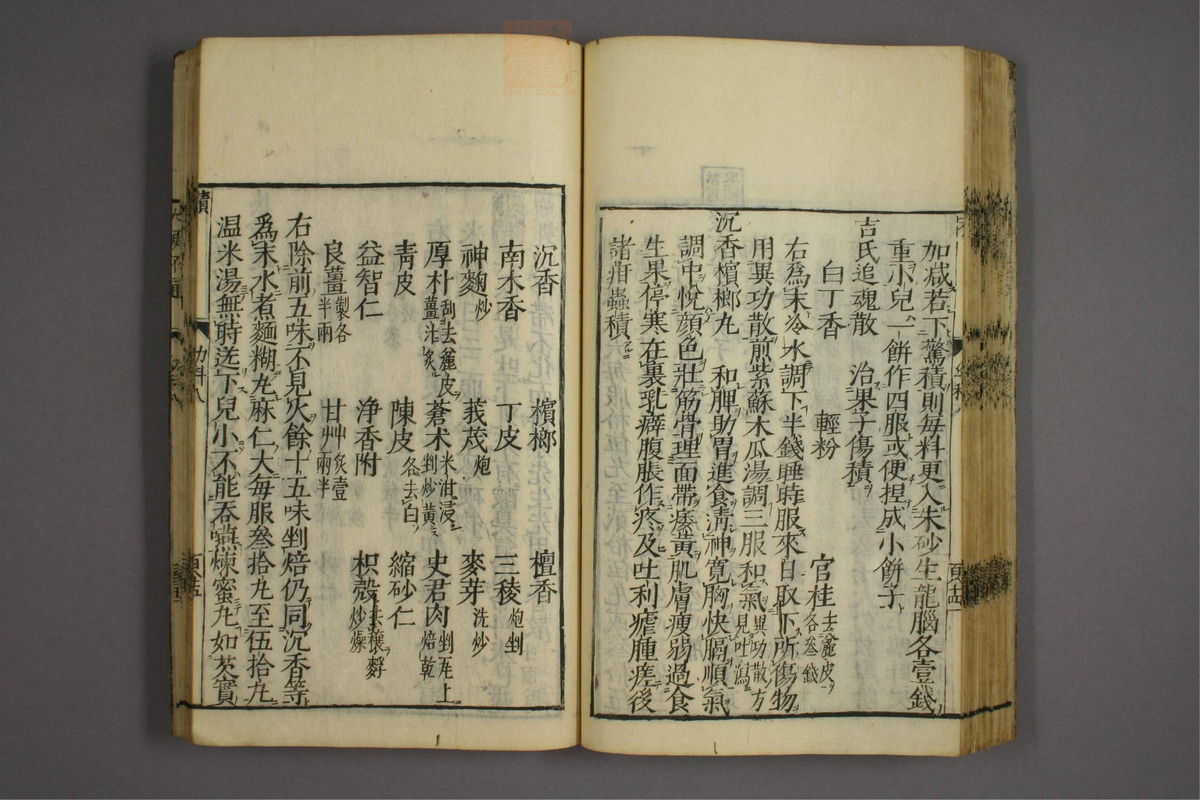 加减若下驚積則每料更入朱砂生龍腦各壹錢
重小兒一餅作四服或便捏成小餅子
吉氏追魂散 治果子傷積
白丁香 輕粉 官桂去麄皮各叁錢
右為末冷水調下半錢睡時服來日取下所傷物
用異功散煎紫蘇木瓜湯調三服和氣異功散方見吐瀉
沉香檳榔丸 和脾助胃進食清神寬胸快膈順氣
調中悅顔色壯筋骨理面帶痿黄肌膚瘦弱過食
生果停寒在裏乳癖腹脹作疼及吐利瘧腫瘥後
諸疳蟲積
沉香 檳榔 檀香
南木香 丁皮 三稜炮剉
神麴炒 莪茂炮 麥芽洗炒
厚朴刮去麄皮薑汁炙 蒼术米泔浸剉炒黄 史君肉剉屑上焙乾
青皮 陳皮去白 縮砂仁
益智仁 净香附 枳殻去穰麩炒燥
良薑製各半兩 甘艸炙壹兩半
右除前五味不見火餘十五味剉焙仍同沉香等
爲末水煮麵糊丸麻仁大每服叁拾丸至伍拾丸
温米湯無時送下兒小不能吞嚥煉蜜丸如芡實